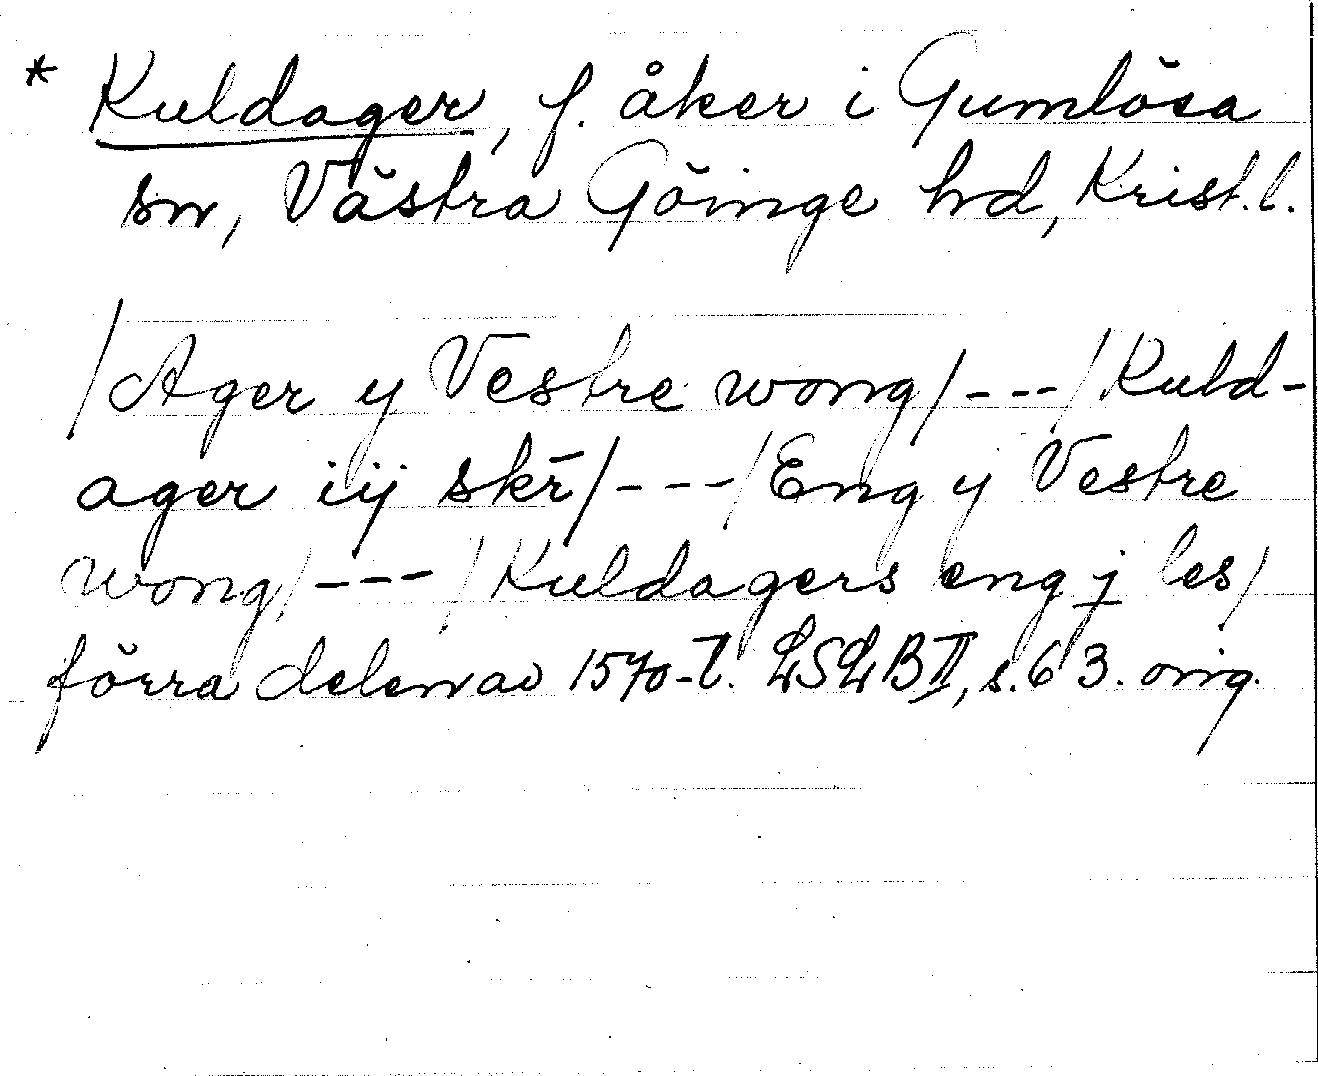 * Kuldager, f. åker i Gumlösa
sn, Västra Göinge hd, Krist.l.
/Ager y Vestre wong/---/Kuld-
ager iij skr̄/---/Eng y Vestre
wong/---/Kuldagers eng j les/
förra delen av 1570-t. LSLB II, s. 63. orig.